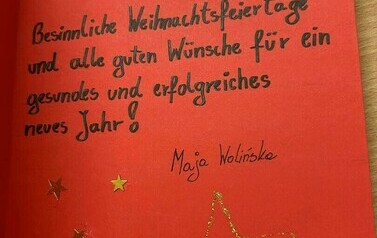 Besinnliche Weihnachtsfeiertage
und alle guten Wünsche für ein
gesundes und erfolgreiches
neues Jahr!
Maja Wolińska